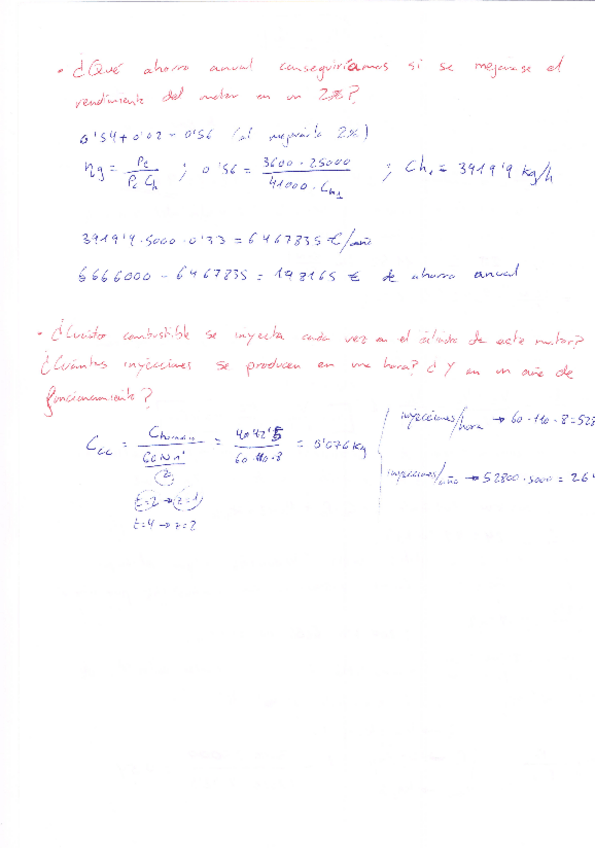 • ¿Qué ahorro anual conseguiríamos si se mejorase el
rendimiento del motor en un 2%?
0'54+0'02 = 0'56 (al mejorarlo 2%)
ηg = Pe / Pc Ch ; 0'56 = 3600 · 25000 / 41000 · Ch1 ; Ch1 = 3919'9 kg/h
3919'9 · 5000 · 0'33 = 6467835 €/año
6666000 - 6467835 = 198165 € de ahorro anual
• ¿Cuánto combustible se inyecta cada vez en el cilindro de este motor?
¿Cuántas inyecciones se producen en una hora? ¿Y en un año de
funcionamiento?
Ccc = Chorario / 60 N i / (z) = 4042'5 / 60 · 110 · 8 = 0'076 kg
t=2 → z=1
t=4 → z=2
inyecciones/hora → 60 · 110 · 8 = 528
inyecciones/año → 52800 · 5000 = 264